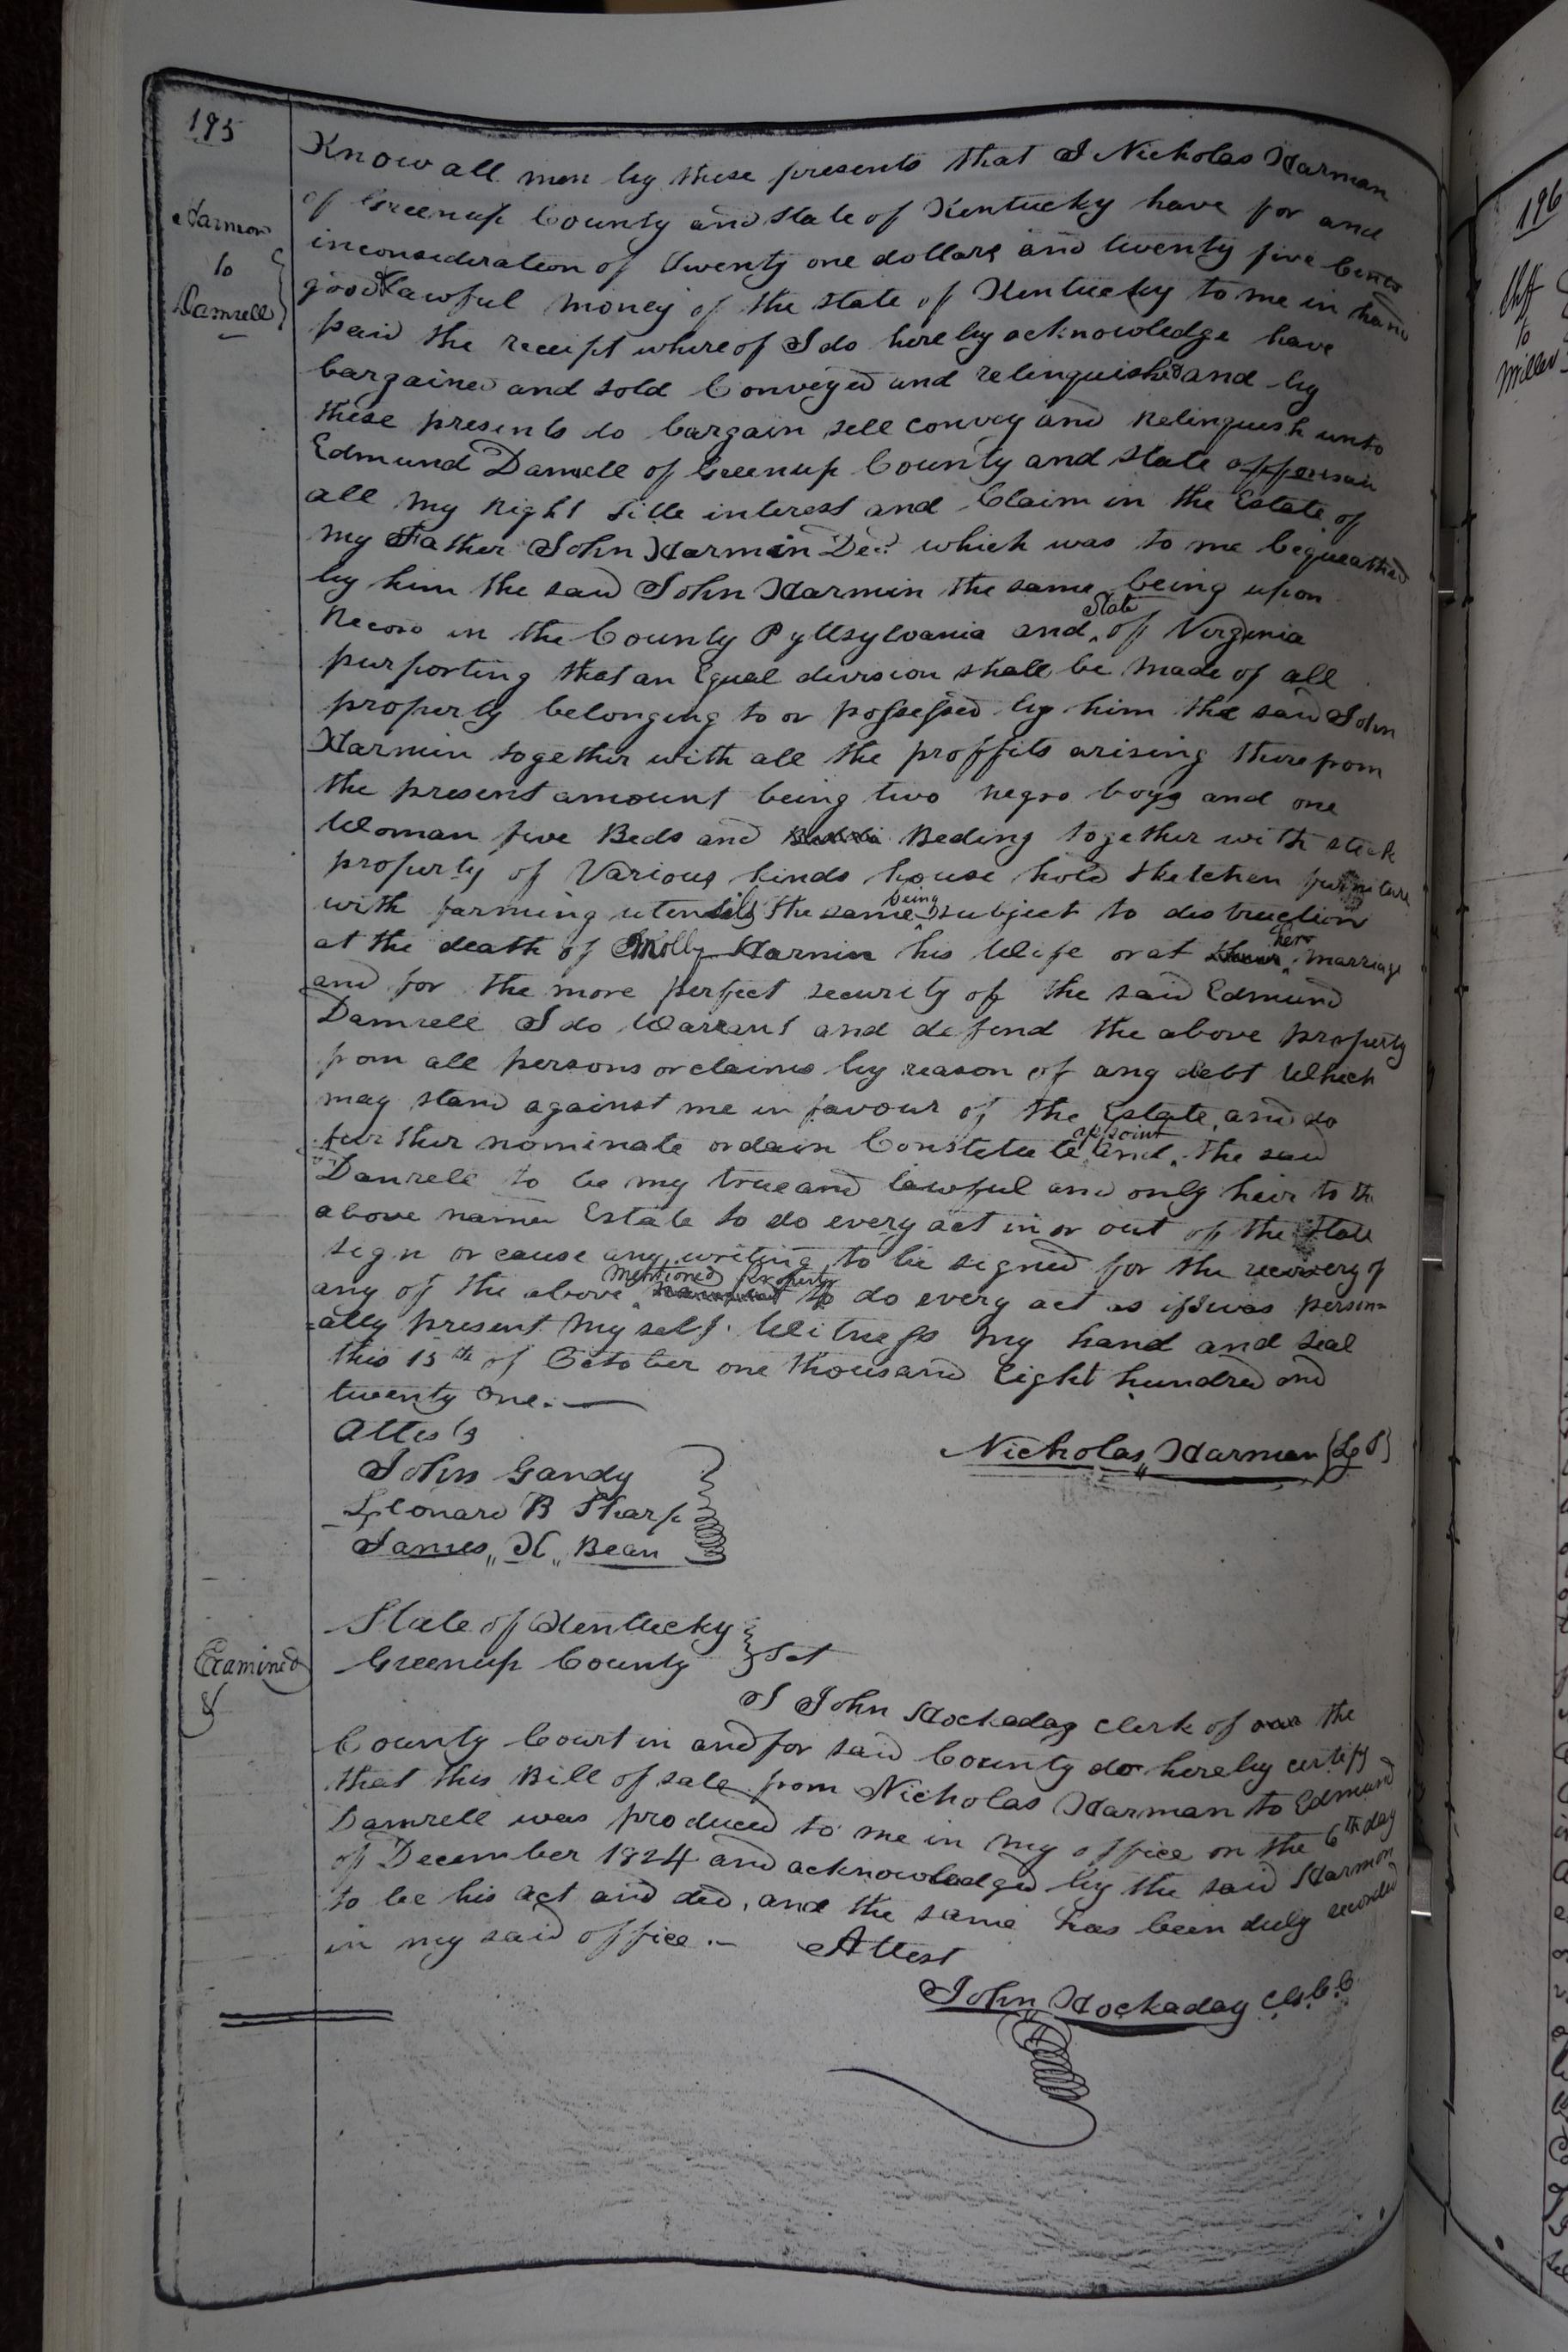 195
Harmon
to
Damrell
Know all men by these presents that I Nicholas Harman
of Greenup County and State of Kentucky have for and
inconsideration of twenty one dollars and twenty five Cents
good & Lawful money of the state of Kentucky to me in hand
paid the receipt whereof I do hereby acknowledge have
bargained and sold Conveyed and relinquished and by
these presents do bargain sell convey and Relinquish unto
Edmund Damrell of Greenup County and State afforesaid
all my Right Title interest and Claim in the Estate of
my Father John Harmin Decd which was to me bequeathed
by him the said John Harmin the same being upon
Record in the County Pyttsylvania and State of Virginia
purporting that an Equal division shall be made of all
property belonging to or possessed by him the said John
Harmin together with all the proffits arising therefrom
the present amount being two negro boys and one
Woman five Beds and Beding together with stock
property of Various kinds house hold & kitchen furniture
with farming utensils the same being subject to distruction
at the death of Molly Harmin his Wife or at her marriage
and for the more perfect security of the said Edmund
Damrell I do Warrant and defend the above property
from all persons or claims by reason of any debt Which
may stand against me in favour of the Estate, and do
further nominate ordain Constitute and appoint the said
Damrell to be my true and lawful and only heir to the
above named Estate to do every act in or out of the State
sign or cause any writing to be signed for the recovery of
any of the above mentioned Property to do every act as if I was person=
=ally present my self. Witness my hand and seal
this 15th of October one thousand Eight hundred and
twenty one.
Attests
Nicholas Harman
John Gandy
Leonard B Sharp
James H Bean
State of Kentucky
Greenup County Sct
Examined
I John Hockaday Clerk of the
County Court in and for said County do hereby certify
that this Bill of sale from Nicholas Harman to Edmund
Damrell was produced to me in my office on the 6th day
of December 1824 and acknowledged by the said Harmon
to be his act and deed, and the same has been duly recorded
in my said office. Attest
John Hockaday
196
to
Miller